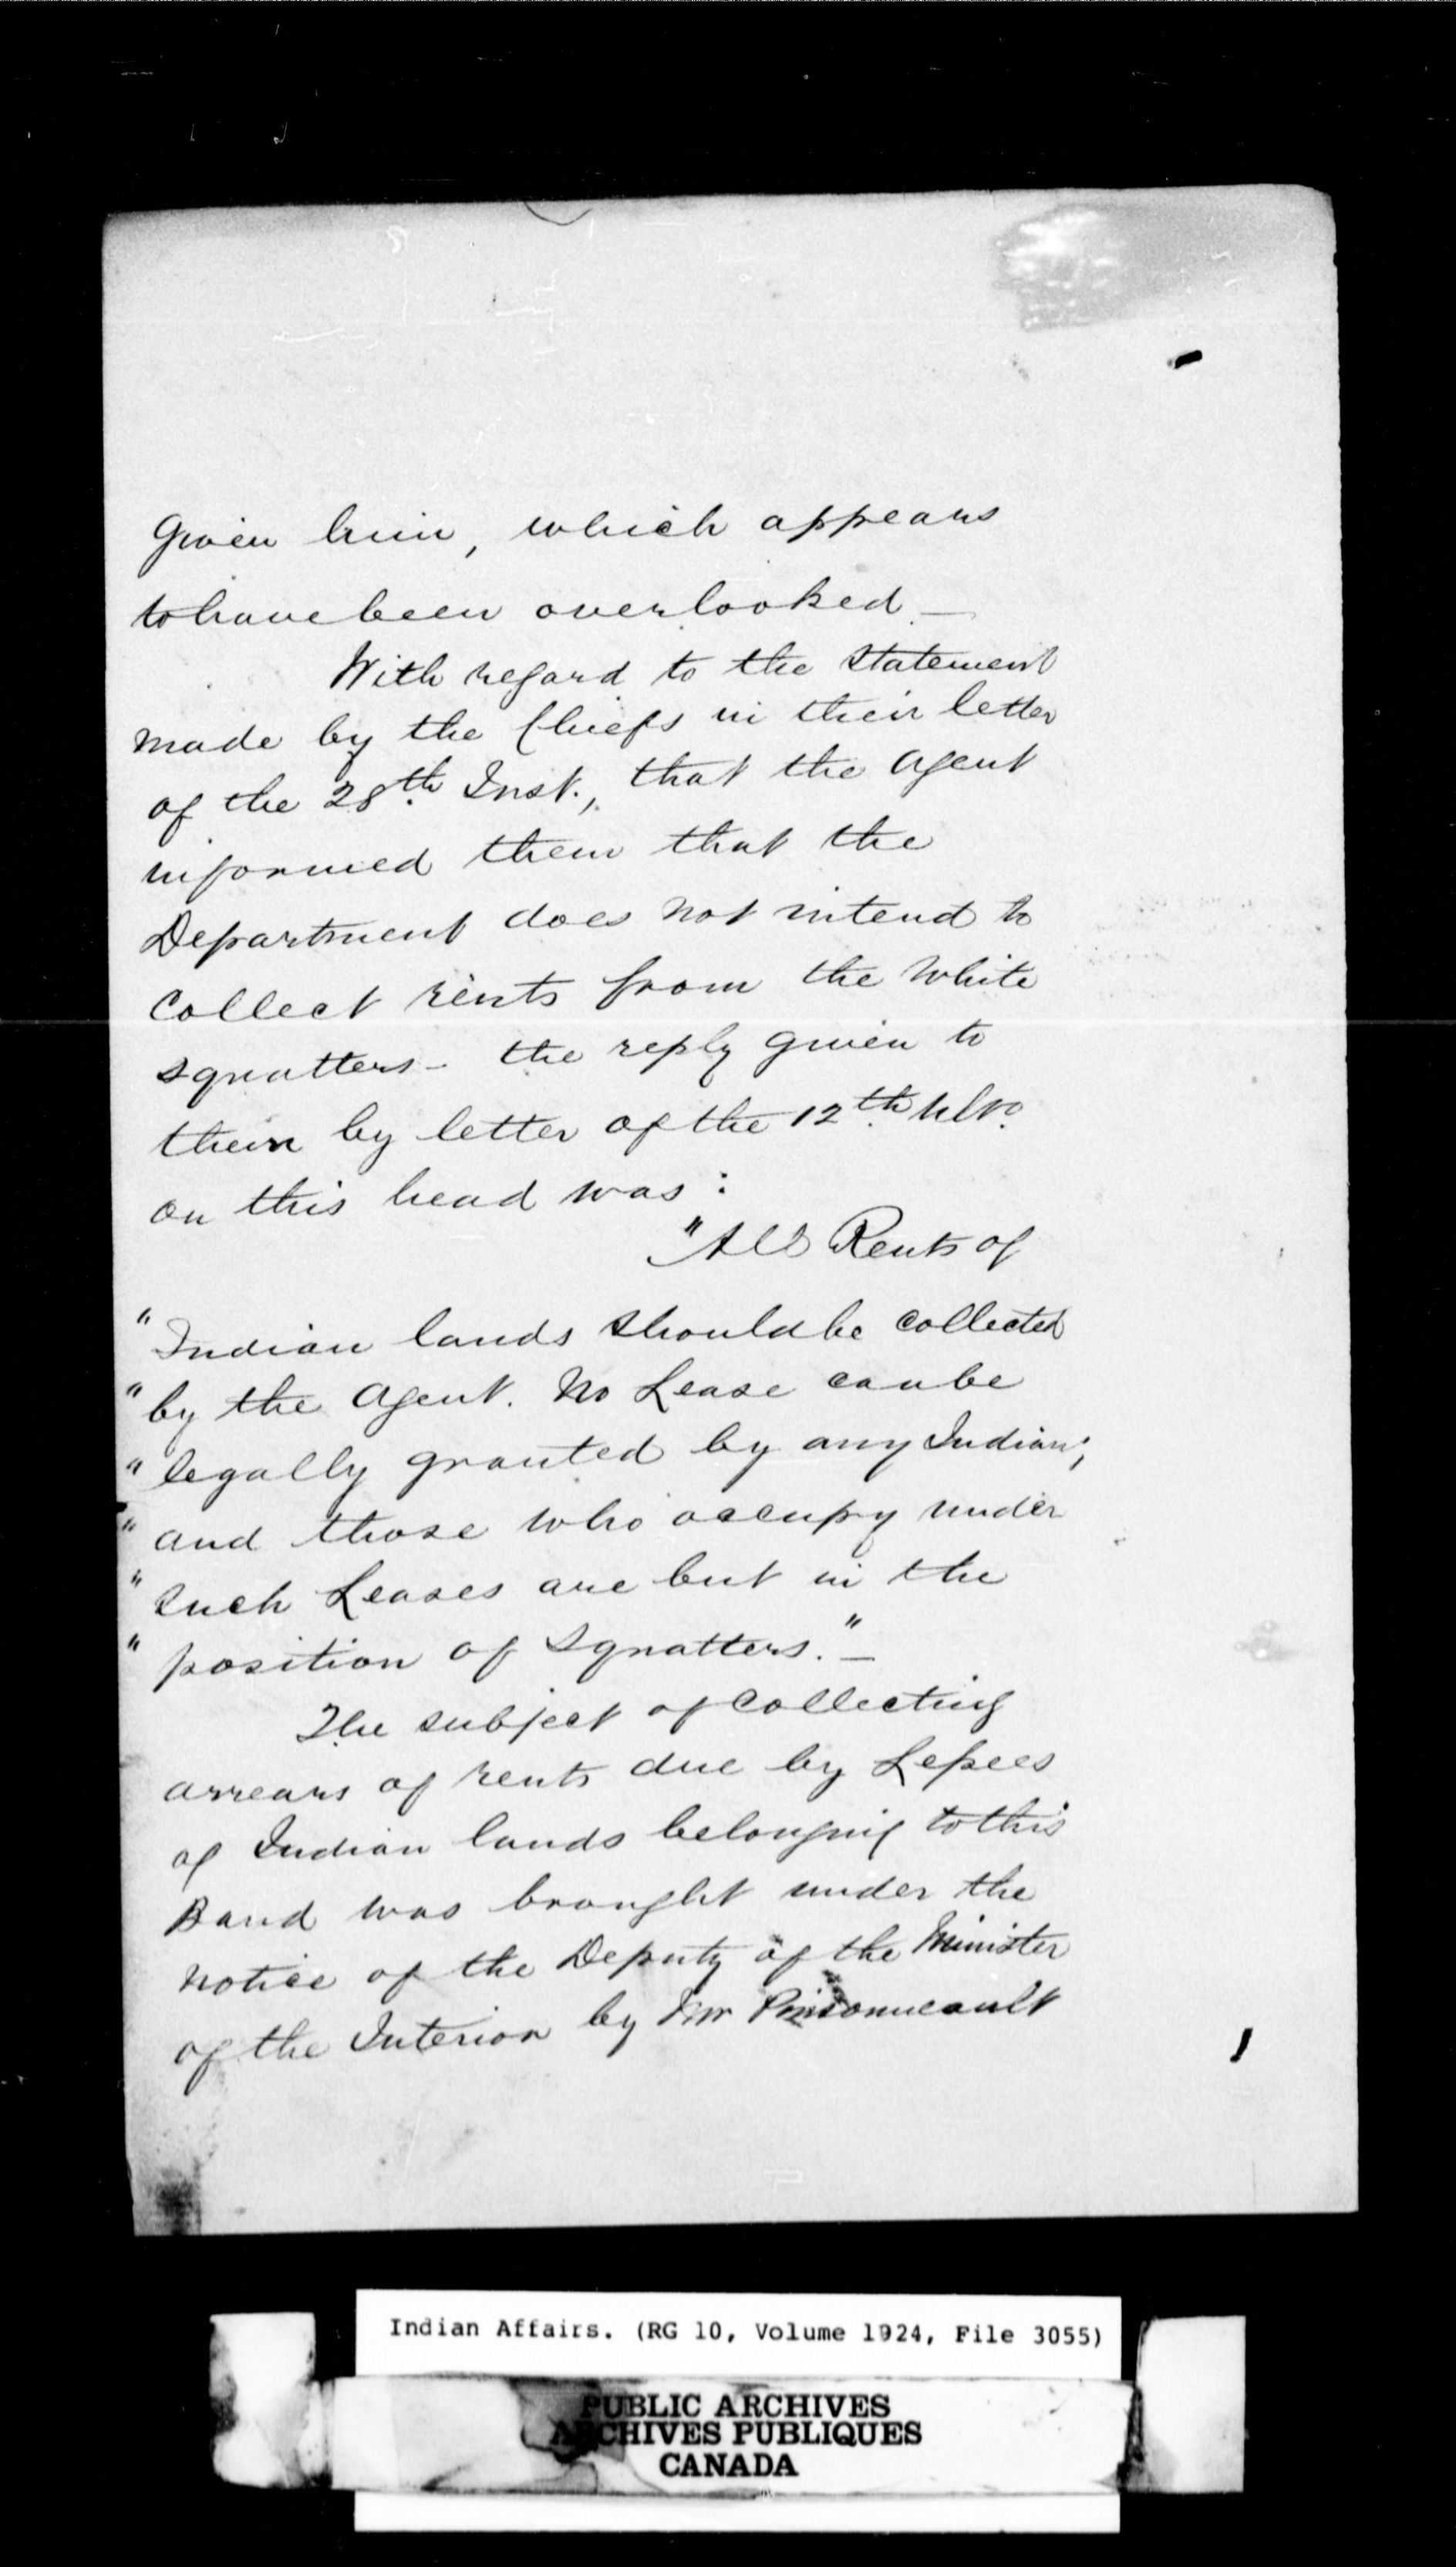 given him, which appears
to have been overlooked —
With regard to the statement
made by the Chiefs in their letter
of the 28th Inst., that the Agent
informed them that the
Department does not intend to
collect rents from the White
squatters – the reply given to
them by letter of the 12th ulto.
on this head was:
"All Rents of
"Indian lands should be collected
"by the Agent. No Lease can be
"legally granted by any Indian;
"and those who occupy under
"such Leases are but in the
"position of Squatters." —
The subject of collecting
arrears of rents due by Lessees
of Indian lands belonging to this
Band was brought under the
notice of the Deputy of the Minister
of the Interior by Mr Pinsonneault
Indian Affairs. (RG 10, Volume 1924, File 3055)
PUBLIC ARCHIVES
ARCHIVES PUBLIQUES
CANADA